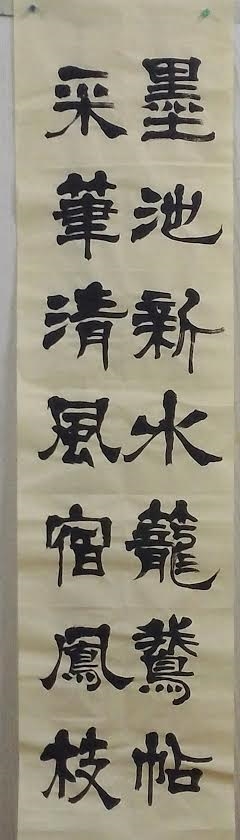 墨池新水籠鵞帖
采筆清風宿鳳枝